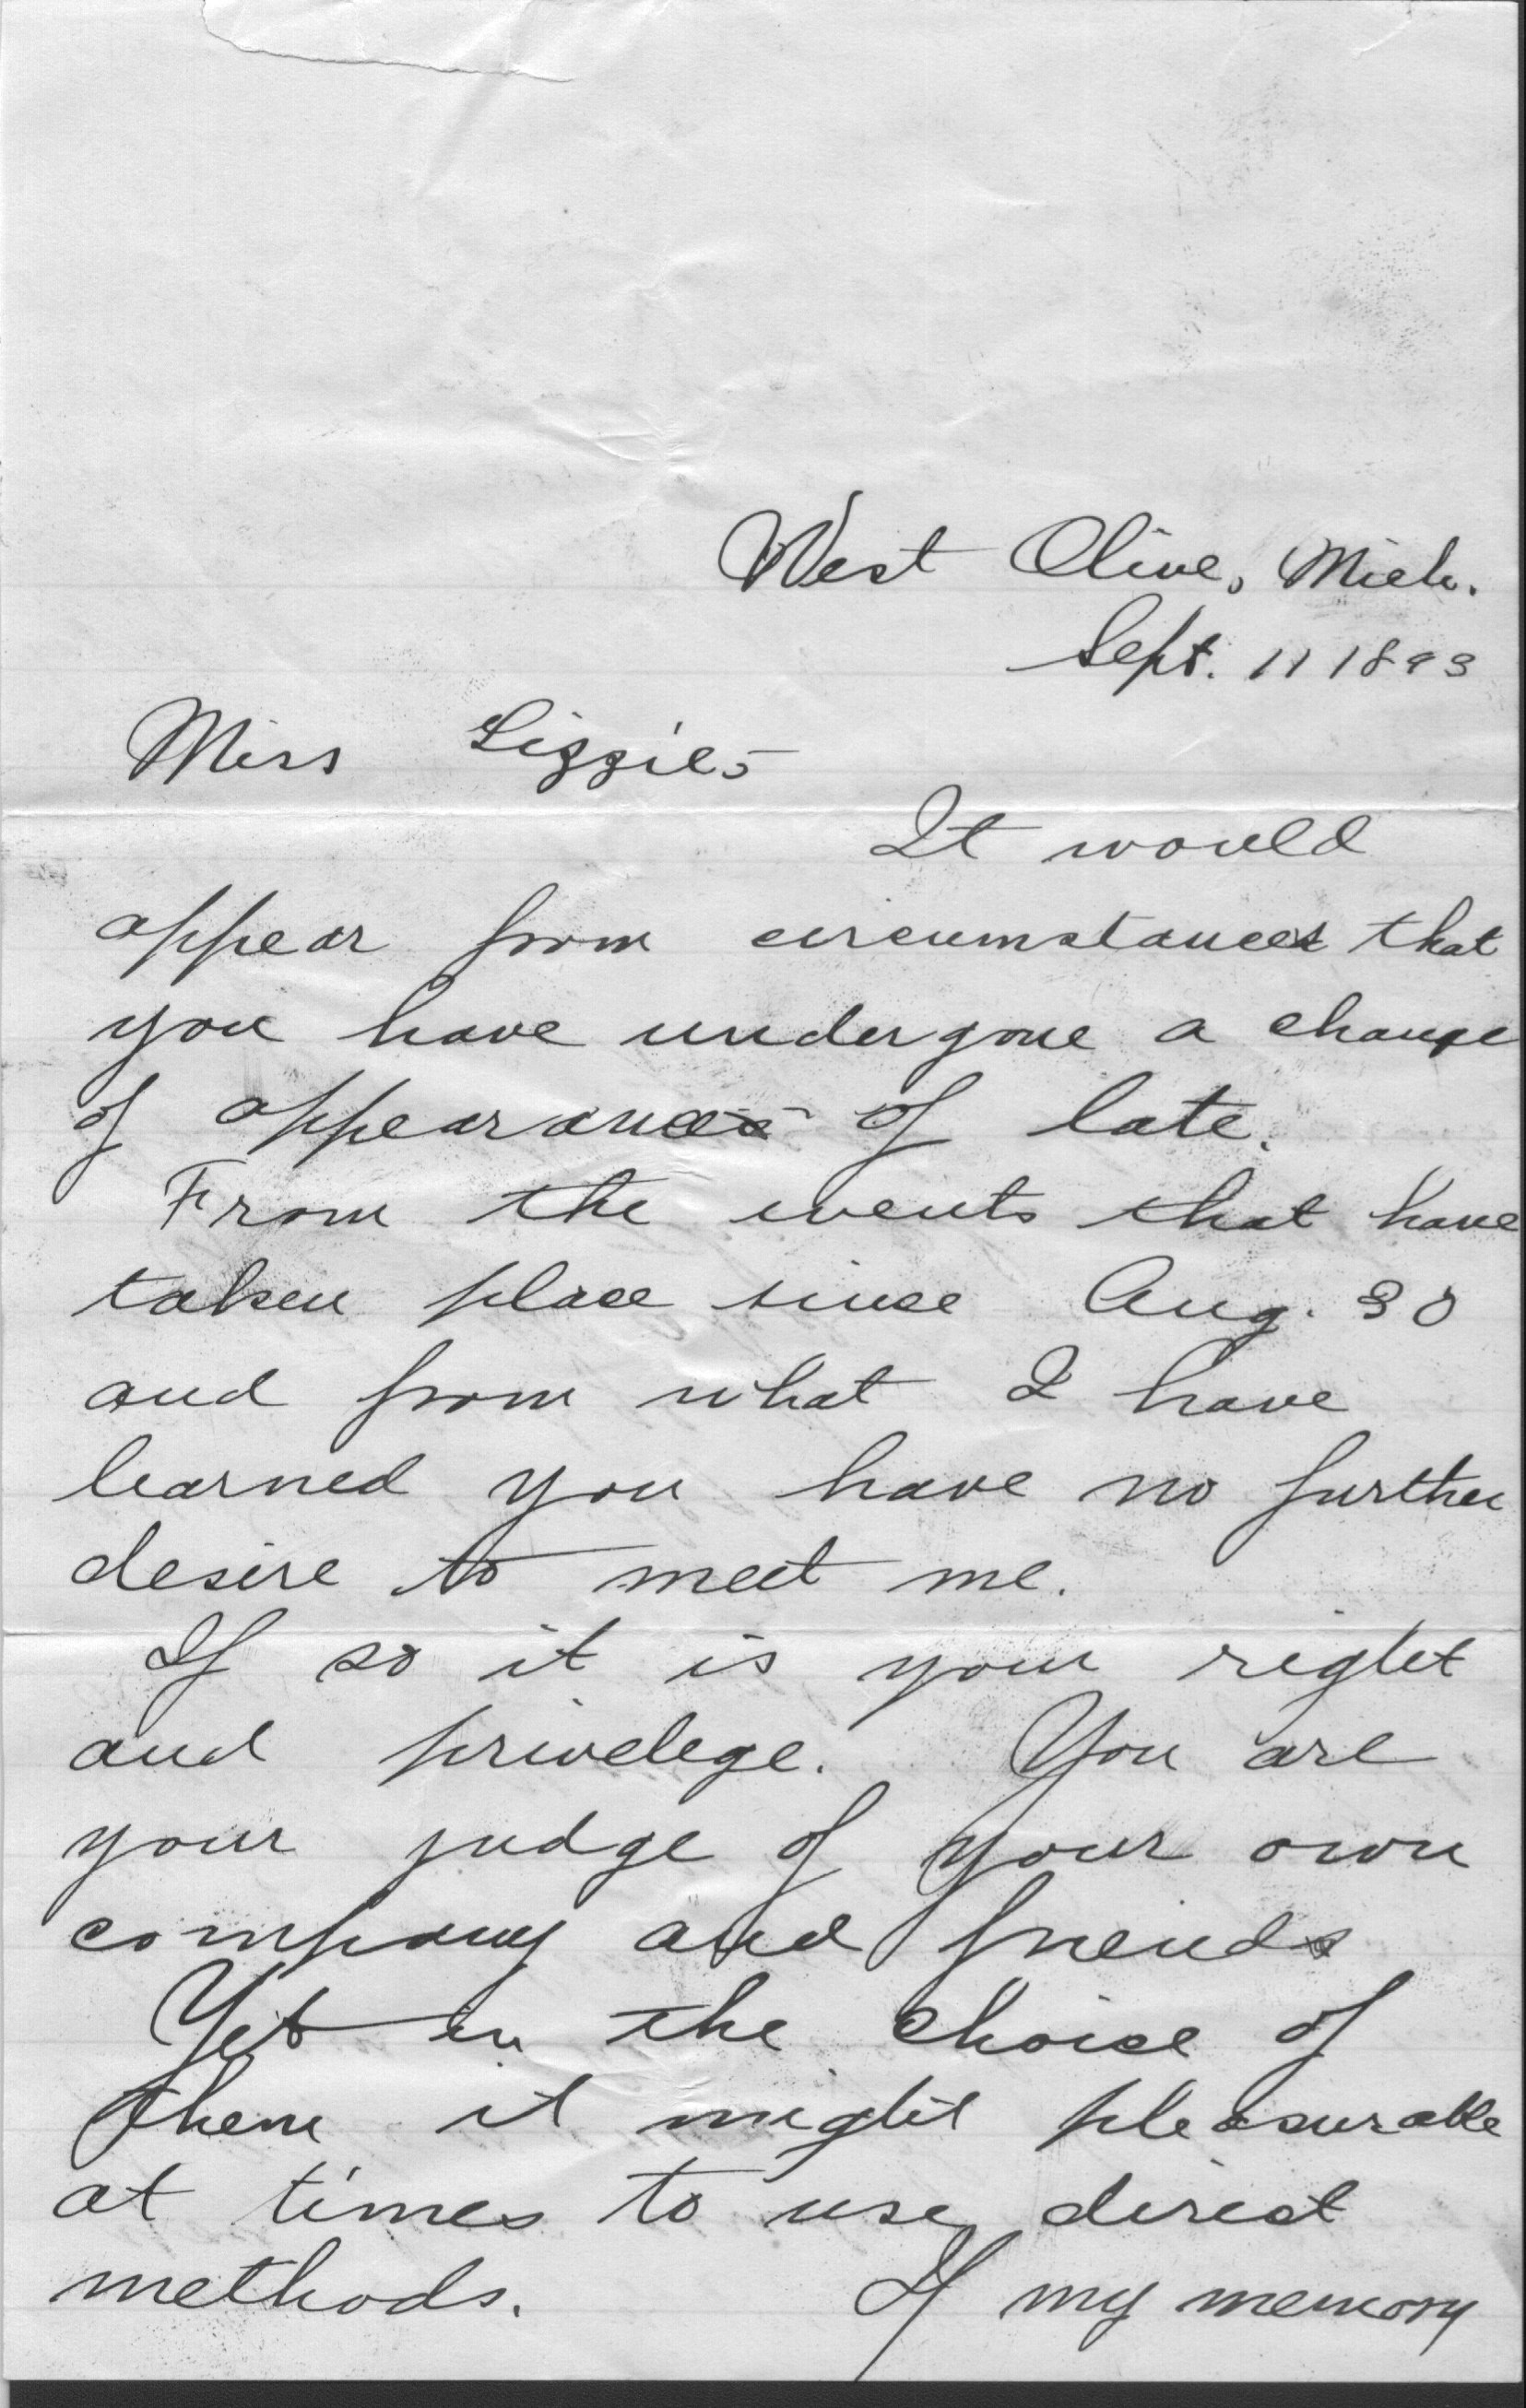 West Olive, Mich.
Sept. 11 1893
Miss Lizzie,-
It would
appear from circumstances that
you have undergone a change
of appearance of late.
From the events that have
taken place since Aug. 30
and from what I have
learned you have no further
desire to meet me.
If so it is your right
and privelege. You are
your judge of your own
company and friends
Yet in the choice of
them it might pleasurable
at times to use direct
methods. If my memory